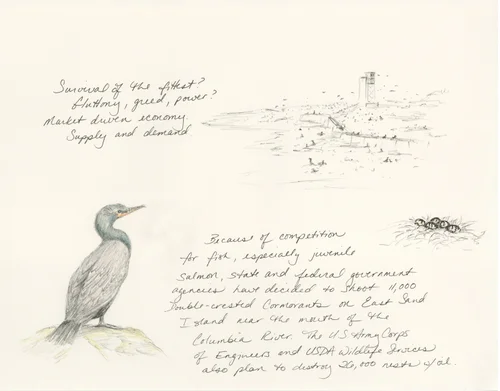 Survival of the fittest?
Gluttony, greed, power?
Market driven economy.
Supply and demand
Because of competition
for fish, especially juvenile
salmon, state and federal government
agencies have decided to shoot 11,000
Double-crested Cormorants on East Sand
Island near the mouth of the
Columbia River. The U.S. Army Corps
of Engineers and USDA Wildlife Services
also plan to destroy 26,000 nests